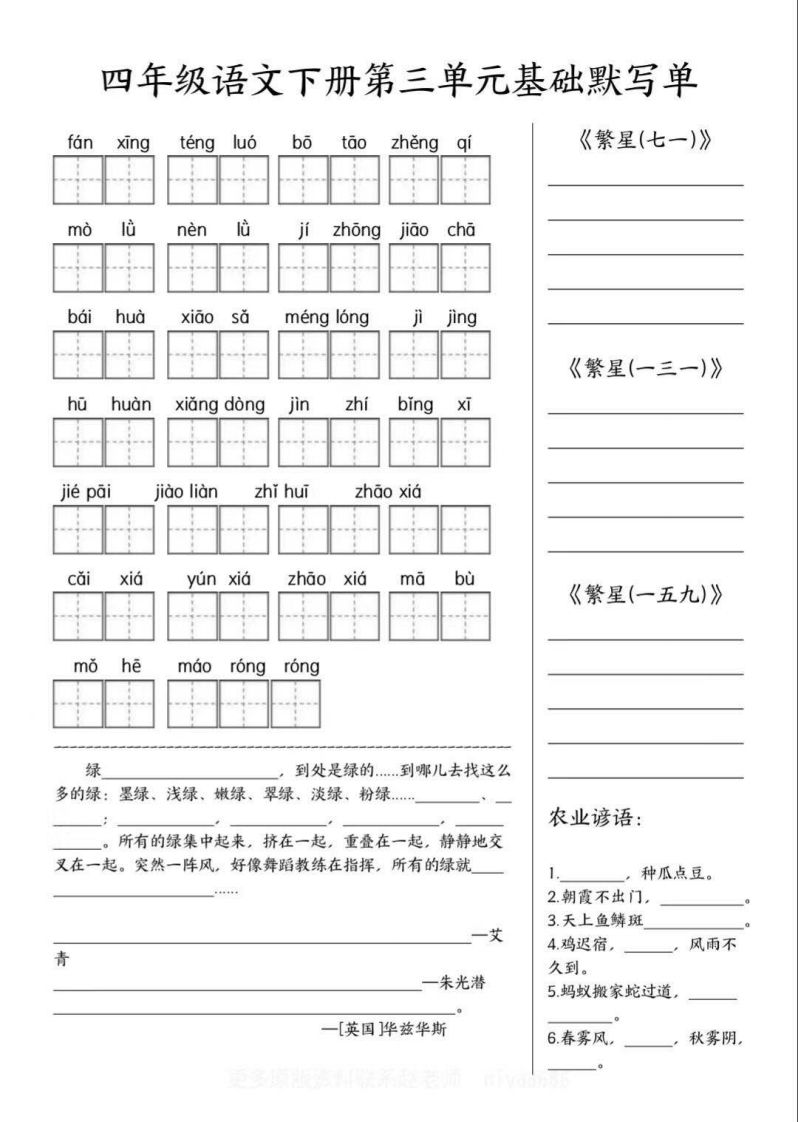 四年级语文下册第三单元基础默写单
fán xīng téng luó bō tāo zhěng qí
mò lǜ nèn lǜ jí zhōng jiāo chā
bái huà xiāo sǎ méng lóng jì jìng
hū huàn xiǎng dòng jìn zhí bǐng xī
jié pāi jiào liàn zhǐ huī zhāo xiá
cǎi xiá yún xiá zhāo xiá mā bù
mǒ hē máo róng róng
绿____________________，到处是绿的……到哪儿去找这么
多的绿：墨绿、浅绿、嫩绿、翠绿、淡绿、粉绿……________、__
______；____________，____________，____________，______
______。所有的绿集中起来，挤在一起，重叠在一起，静静地交
叉在一起。突然一阵风，好像舞蹈教练在指挥，所有的绿就____
____________________……
________________________________________—艾
青
________________________________________—朱光潜
________________________________________。
—[英国]华兹华斯
《繁星(七一)》
《繁星(一三一)》
《繁星(一五九)》
农业谚语：
1.________，种瓜点豆。
2.朝霞不出门，__________。
3.天上鱼鳞斑____________。
4.鸡迟宿，______，风雨不
久到。
5.蚂蚁搬家蛇过道，______
________。
6.春雾风，______，秋雾阴，
______。